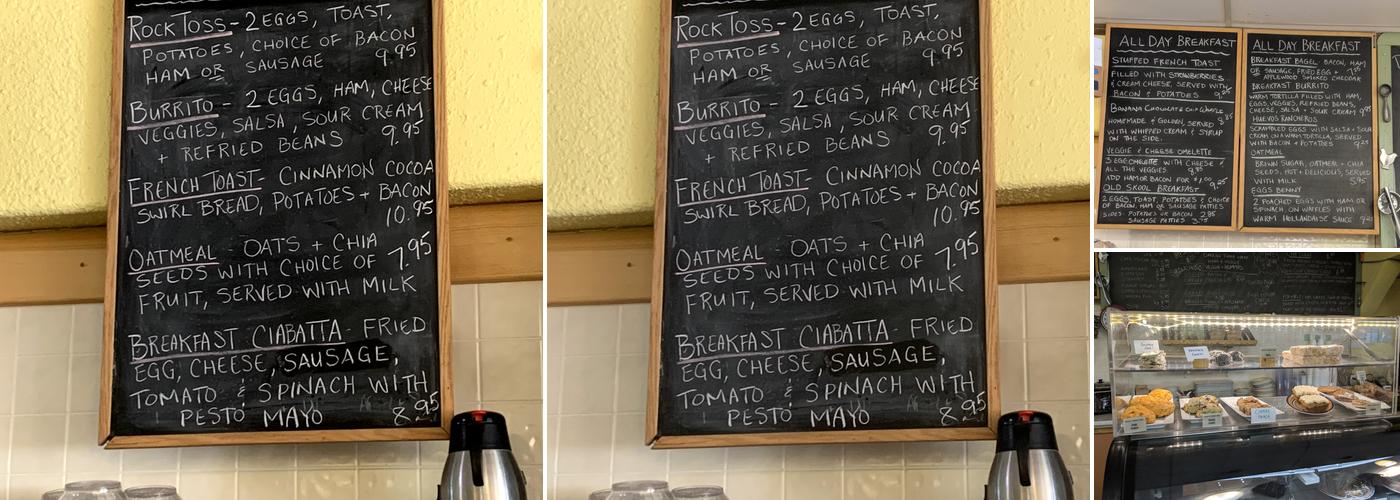 ROCK TOSS - 2 EGGS, TOAST,
POTATOES, CHOICE OF BACON
HAM OR SAUSAGE 9.95
BURRITO - 2 EGGS, HAM, CHEESE
VEGGIES, SALSA, SOUR CREAM
+ REFRIED BEANS 9.95
FRENCH TOAST - CINNAMON COCOA
SWIRL BREAD, POTATOES + BACON
10.95
OATMEAL - OATS + CHIA
SEEDS WITH CHOICE OF 7.95
FRUIT, SERVED WITH MILK
BREAKFAST CIABATTA - FRIED
EGG, CHEESE, SAUSAGE,
TOMATO & SPINACH WITH
PESTO MAYO 8.95
ROCK TOSS - 2 EGGS, TOAST,
POTATOES, CHOICE OF BACON
HAM OR SAUSAGE 9.95
BURRITO - 2 EGGS, HAM, CHEESE
VEGGIES, SALSA, SOUR CREAM
+ REFRIED BEANS 9.95
FRENCH TOAST - CINNAMON COCOA
SWIRL BREAD, POTATOES + BACON
10.95
OATMEAL - OATS + CHIA
SEEDS WITH CHOICE OF 7.95
FRUIT, SERVED WITH MILK
BREAKFAST CIABATTA - FRIED
EGG, CHEESE, SAUSAGE,
TOMATO & SPINACH WITH
PESTO MAYO 8.95
ALL DAY BREAKFAST
STUFFED FRENCH TOAST
FILLED WITH STRAWBERRIES
& CREAM CHEESE, SERVED WITH
BACON & POTATOES
BANANA CHOCOLATE CHIP WAFFLE
HOMEMADE & GOLDEN, SERVED
WITH WHIPPED CREAM & SYRUP
ON THE SIDE.
VEGGIE & CHEESE OMELETTE
3 EGG OMELETTE WITH CHEESE &
ALL THE VEGGIES. 8.95
ADD HAM OR BACON FOR $1.00
OLD SKOOL BREAKFAST 9.95
2 EGGS, TOAST, POTATOES & CHOICE
OF BACON, HAM OR SAUSAGE PATTIES
SIDES: POTATOES OR BACON 2.95
SAUSAGE PATTIES 3.75
ALL DAY BREAKFAST
BREAKFAST BAGEL BACON, HAM
OR SAUSAGE, FRIED EGG + 7.95
APPLEWOOD SMOKED CHEDDAR
BREAKFAST BURRITO
WARM TORTILLA FILLED WITH HAM,
EGGS, VEGGIES, REFRIED BEANS,
CHEESE, SALSA + SOUR CREAM 9.95
HUEVOS RANCHEROS
SCRAMBLED EGGS WITH SALSA + SOUR
CREAM ON A WARM TORTILLA, SERVED
WITH BACON + POTATOES
OATMEAL
BROWN SUGAR, OATMEAL + CHIA
SEEDS, HOT + DELICIOUS, SERVED
WITH MILK 5.95
EGGS BENNY
2 POACHED EGGS WITH HAM OR
SPINACH ON WAFFLES WITH
WARM HOLLANDAISE SAUCE